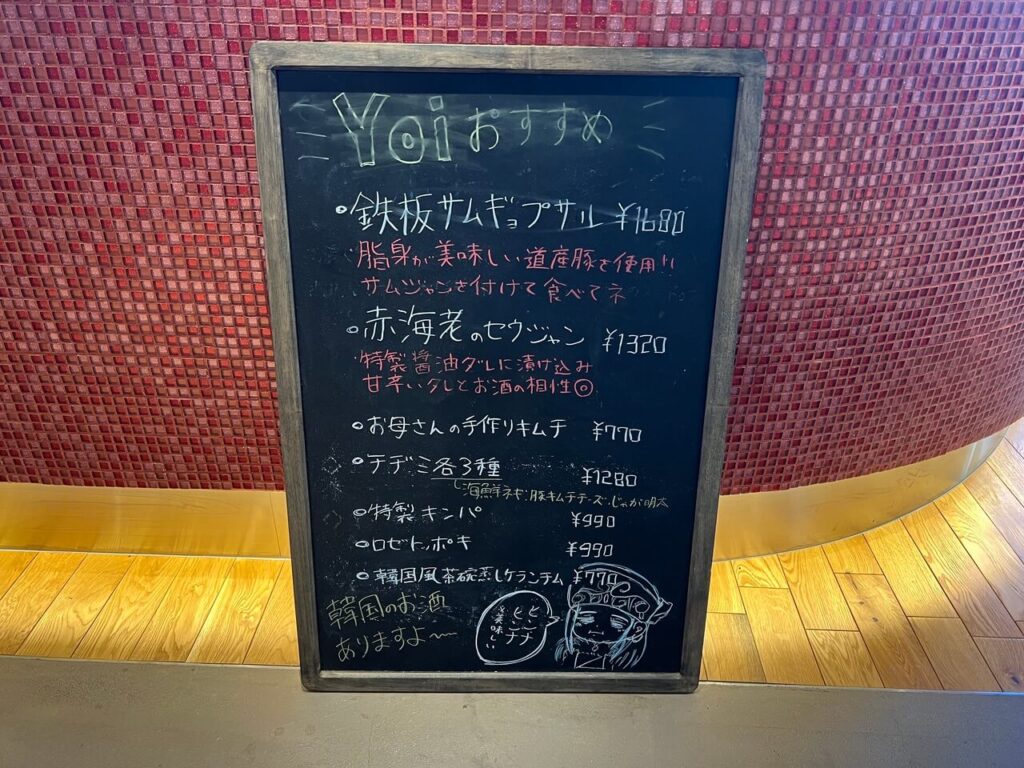 Yoi おすすめ
・鉄板サムギョプサル ¥1680
脂身が美味しい道産豚を使用!!
サムジャンを付けて食べてネ
・赤海老のセウジャン ¥1320
特製醤油ダレに漬け込み
甘辛いタレとお酒の相性◎
・お母さんの手作りキムチ ¥770
・テヂミ各3種 ¥1280
海鮮ネギ・豚キムチチーズ・じゃが明太
・特製キンパ ¥990
・ロゼトッポキ ¥990
・韓国風茶碗蒸しケランチム ¥770
韓国のお酒
ありますよ〜
美味しい